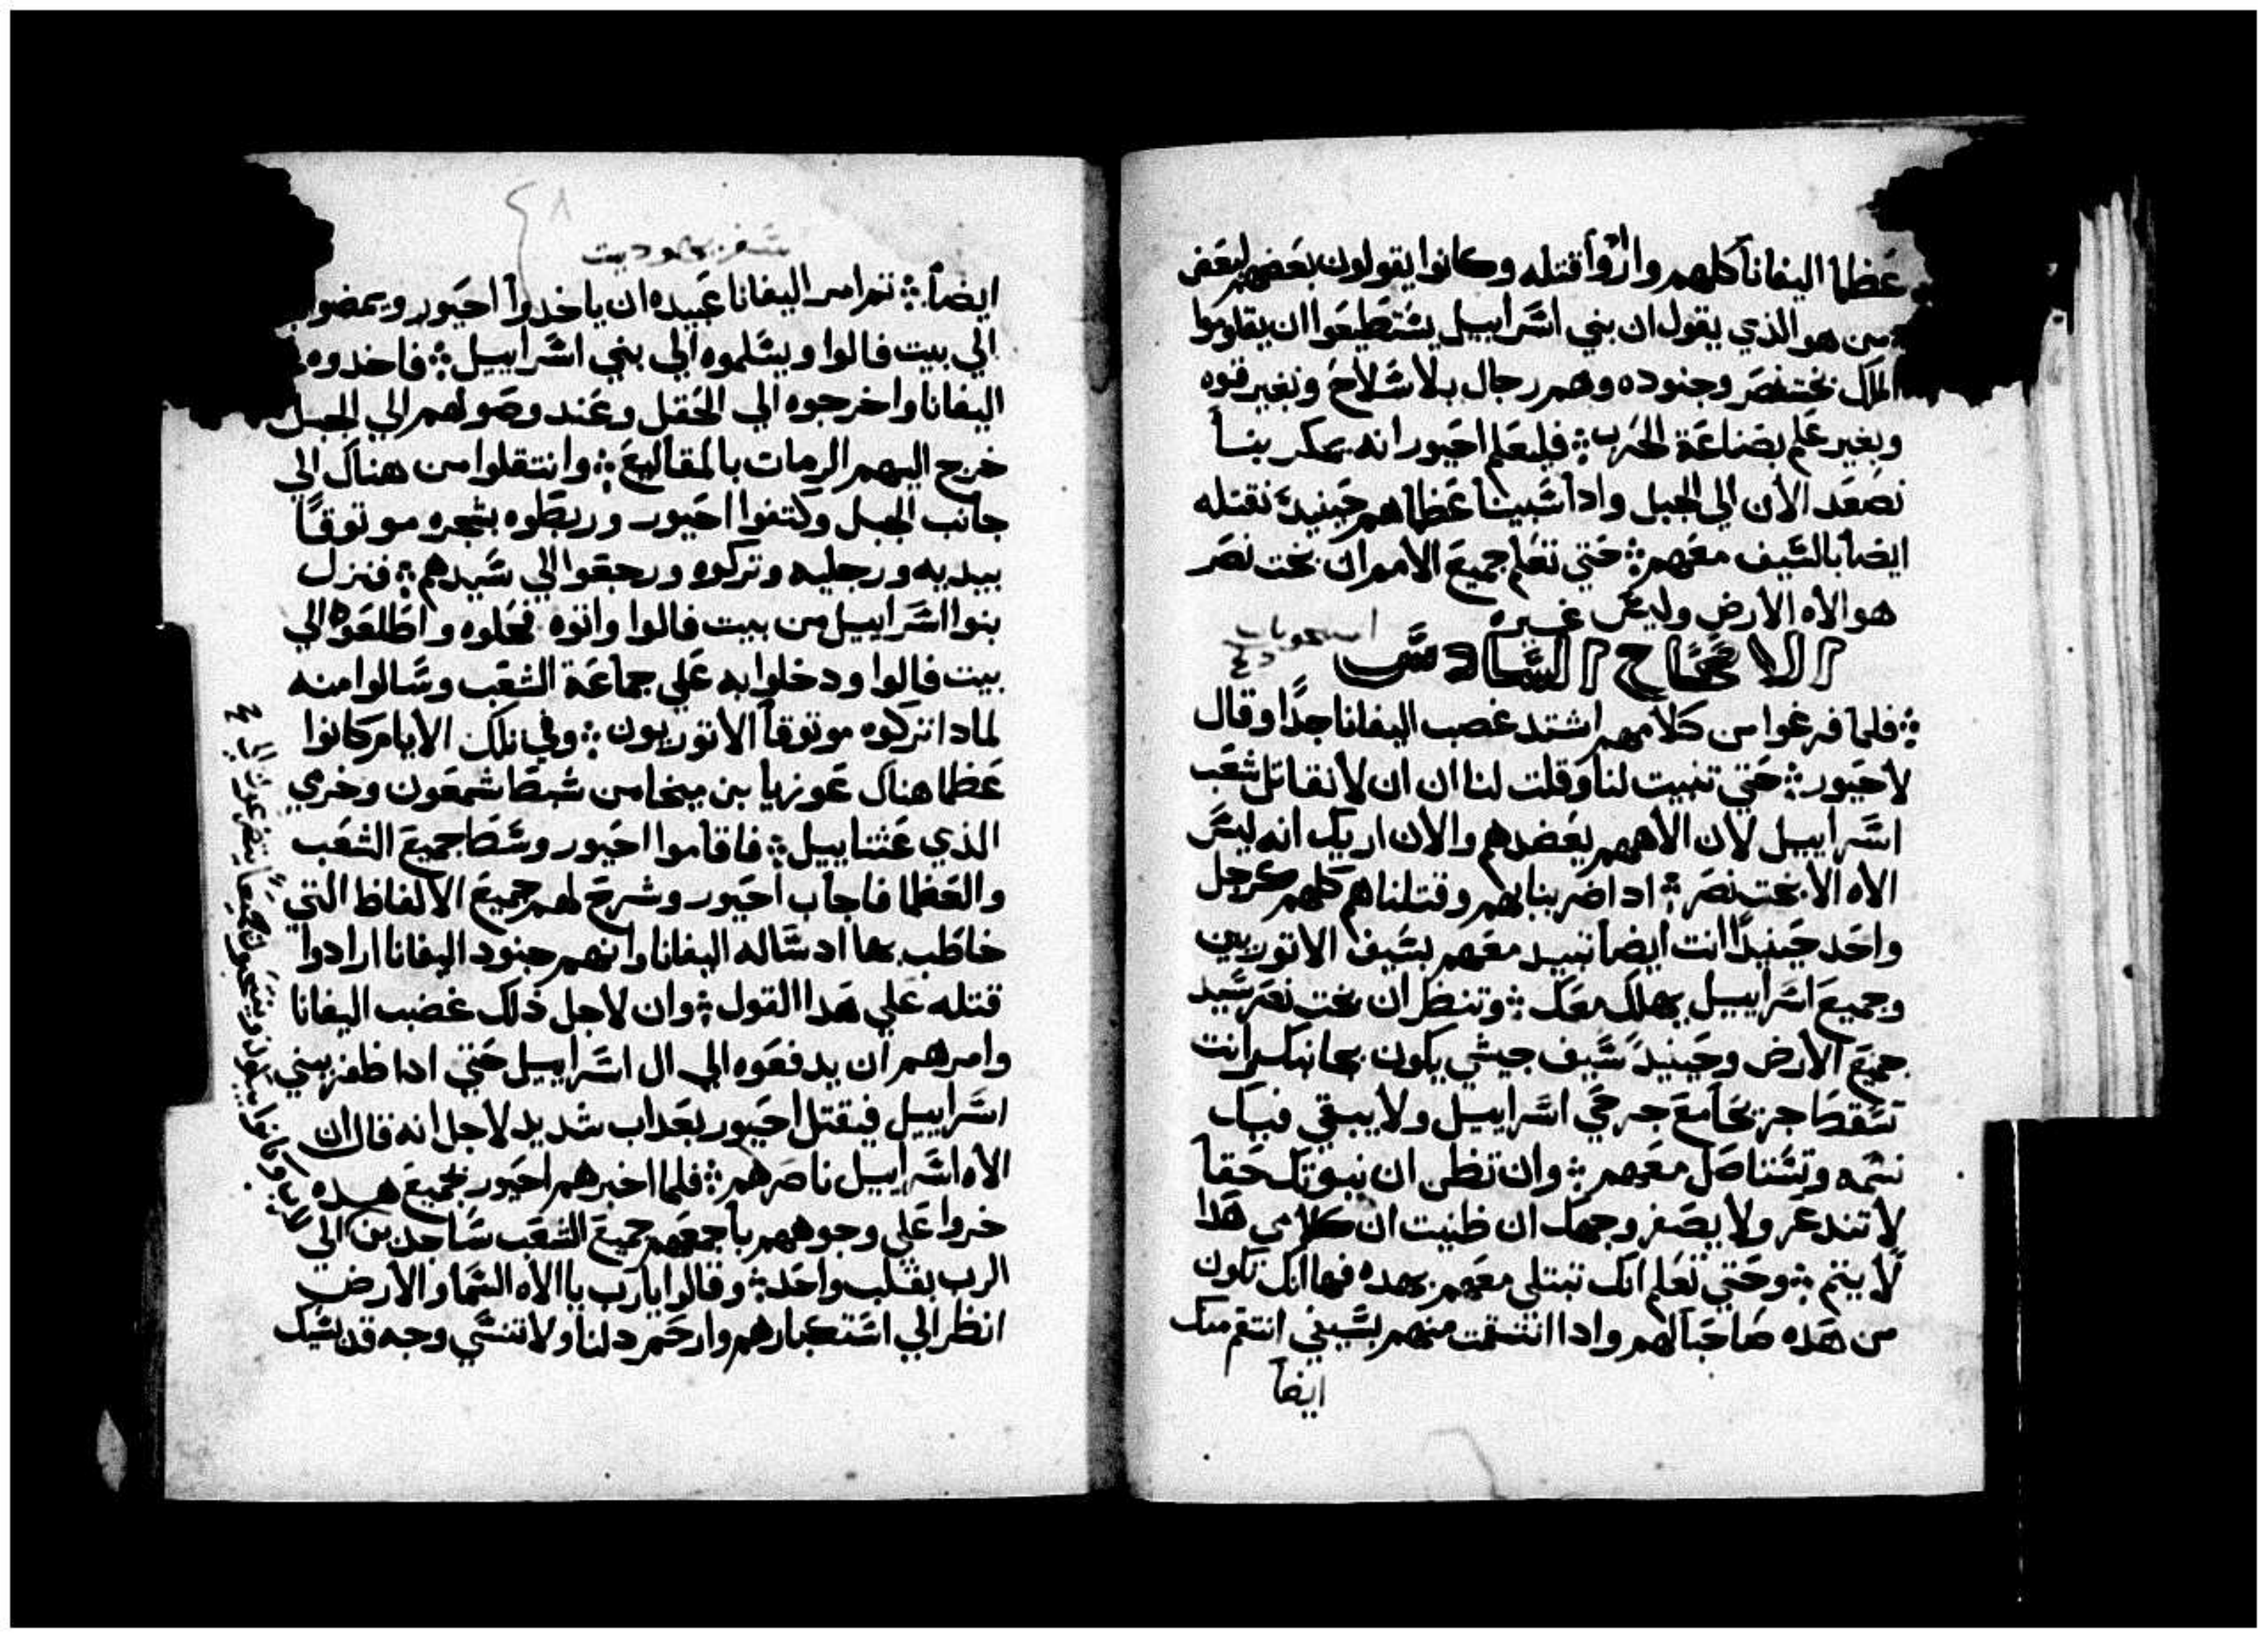 عظما اليفانا كلهم وارادوا قتله وكانوا يقولون بعضهم لبعض
من هو الذي يقول ان بني اسراييل يستطيعوا ان يقاوموا
الملك بختنصر وجنوده وهم رجال بلا سلاح وبغير قوه
وبغير علم بصناعة الحرب فليعلم احيور انه يمكر بنا
نصعد الان الي الجبل وادا سبينا عظماهم حينيد نقتله
ايضا بالسيف معهم حتي تعلم جميع الامم ان بخت نصر
هو الاه الارض وليس غيره
الاصحاح السادس
فلما فرغوا من كلامهم اشتد غضب اليفانا جدا وقال
لاحيور حتي تنبيت لنا وقلت لنا ان ان لا نقاتل شعب
اسراييل لان الاههم يعضدهم والان اريك انه ليس
الاه الا بخت نصر ادا ضربنا بهم وقتلناهم كلهم كرجل
واحد حينيدا انت ايضا تبيد معهم بسيف الاتوريين
وجميع اسراييل يهلك معك وتنظر ان بخت نصر سيد
جميع الارض وحينيد سيف جيشي يكون بجانبك انت
تسقط جريحا مع جرحي اسراييل ولا يبقي فيك
نسمه وتستاصل معهم وان تظن ان نبوتك حقا
لا تندعر ولا يصفر وجهك ان ظنيت ان كلامي هدا
لا يتم وحتي تعلم انك تبتلي معهم بهده فها انك تكون
من هده صاحبا لهم وادا انتقمت منهم بسيفي انتقم منك
ايضا
٤٨
سفر يهوديت
ايضا تم امر اليفانا عبيده ان ياخدوا احيور ويمضو
الي بيت فالوا ويسلموه الي بني اسراييل فاخدوه
اليفانا واخرجوه الي الحقل وعند وصولهم الي الجبل
خرج اليهم الرمات بالمقاليع وانتقلوا من هناك الي
جانب الجبل وكتفوا احيور وربطوه بشجره موتوقا
بيديه ورجليه وتركوه ورجعوا الي سيدهم فنزل
بنوا اسراييل من بيت فالوا واتوه فحلوه واطلعوه الي
بيت فالوا ودخلوا به علي جماعة الشعب وسالوا منه
لمادا تركوه موتوقا الاتوريون وفي تلك الايام كانوا
عظما هناك عوزيا بن ميخا من سبط شمعون وخري
الذي عثناييل فاقاموا احيور وسط جميع الشعب
والعظما فاجاب احيور وشرح لهم جميع الالفاظ التي
خاطب بها اد ساله اليفانا وانهم جنود اليفانا ارادوا
قتله علي هدا القول وان لاجل ذلك غضب اليفانا
وامرهم ان يدفعوه الي ال اسراييل حتي ادا ظفر ببني
اسراييل فيقتل احيور بعداب شديد لاجل انه قال ان
الاه اسراييل ناصرهم فلما اخبرهم احيور بجميع هده
خروا علي وجوههم باجمعهم جميع الشعب ساجدين الي
الرب بقلب واحد وقالوا يارب يا الاه السما والارض
انظر الي استكبارهم وارحم دلنا ولا تنسي وجه قديسيك